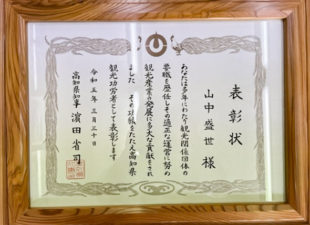 表彰状
山中盛世様
あなたは多年にわたり観光関係団体の
要職を歴任しその適正な運営に努め
観光産業の発展に多大な貢献をされ
ました その功績をたたえ高知県
観光功労者として表彰します
令和五年三月三十日
高知県知事 濵田省司